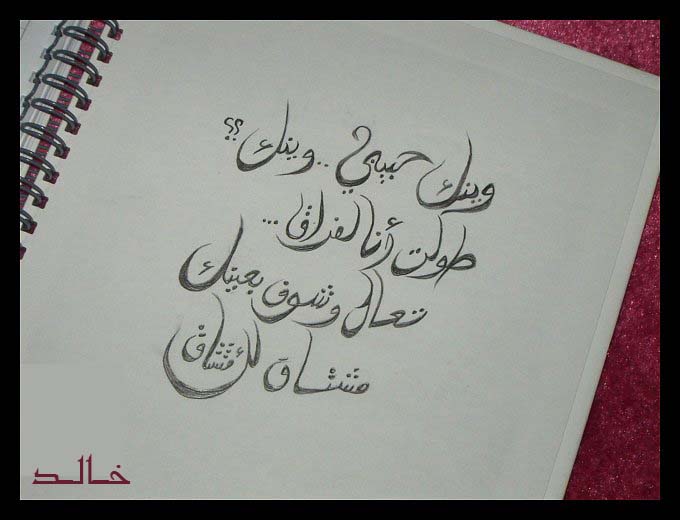 وينك حبيبي .. وينك ؟؟
طولت أنا لفراق ...
تعال وشوف بعينك
مشتاق لك مشتاق
خالد